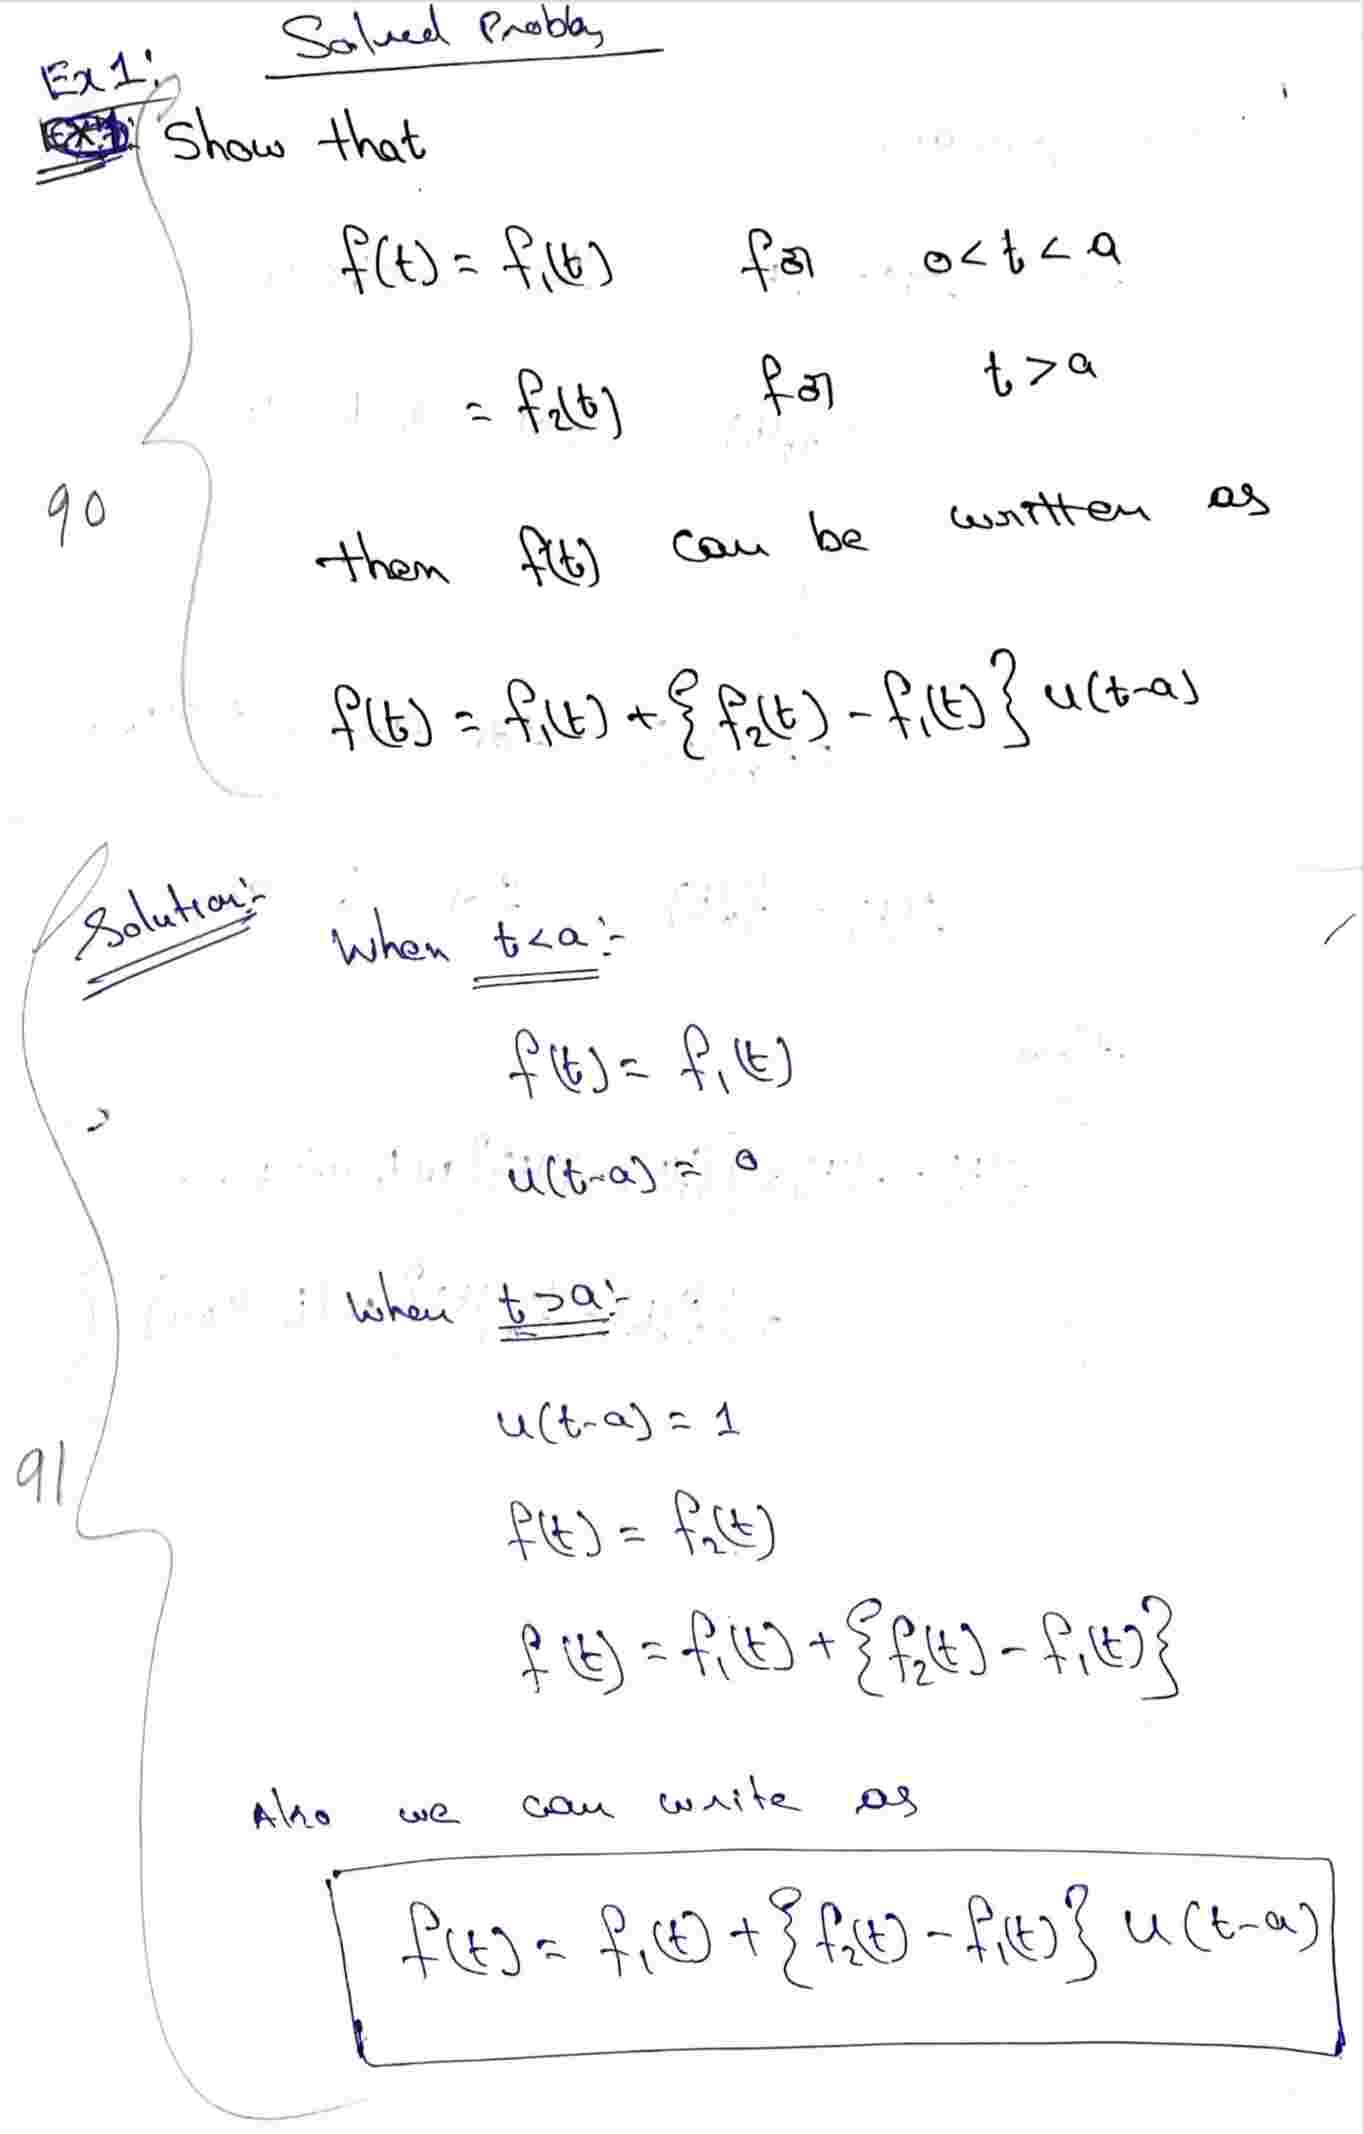 Solved Probbs
Ex 1:
Show that
f(t) = f₁(t) for 0<t<a
= f₂(t) for t>a
90
then f(t) can be written as
f(t) = f₁(t) + {f₂(t) - f₁(t)} u(t-a)
Solution:-
When t<a:-
f(t) = f₁(t)
u(t-a) = 0
When t>a:-
u(t-a) = 1
91
f(t) = f₂(t)
f(t) = f₁(t) + {f₂(t) - f₁(t)}
Also we can write as
f(t) = f₁(t) + {f₂(t) - f₁(t)} u(t-a)